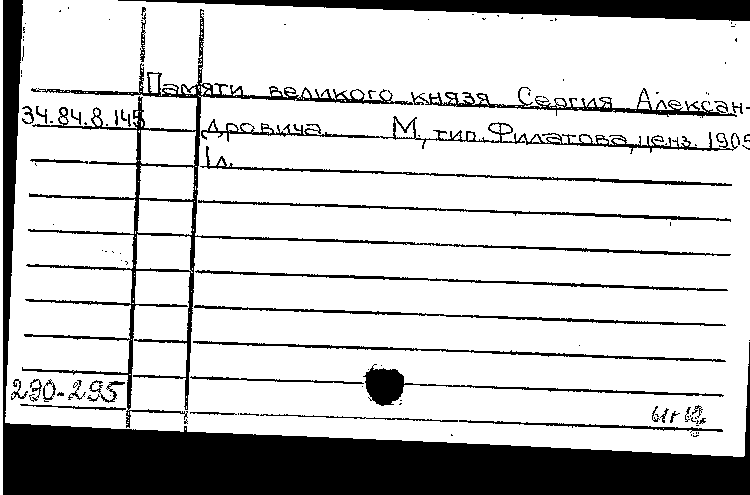 Памяти великого князя Сергия Алексан-
34.84.8.145 дровича. М, тип. Филатова, ценз. 1905
1 л.
290-295